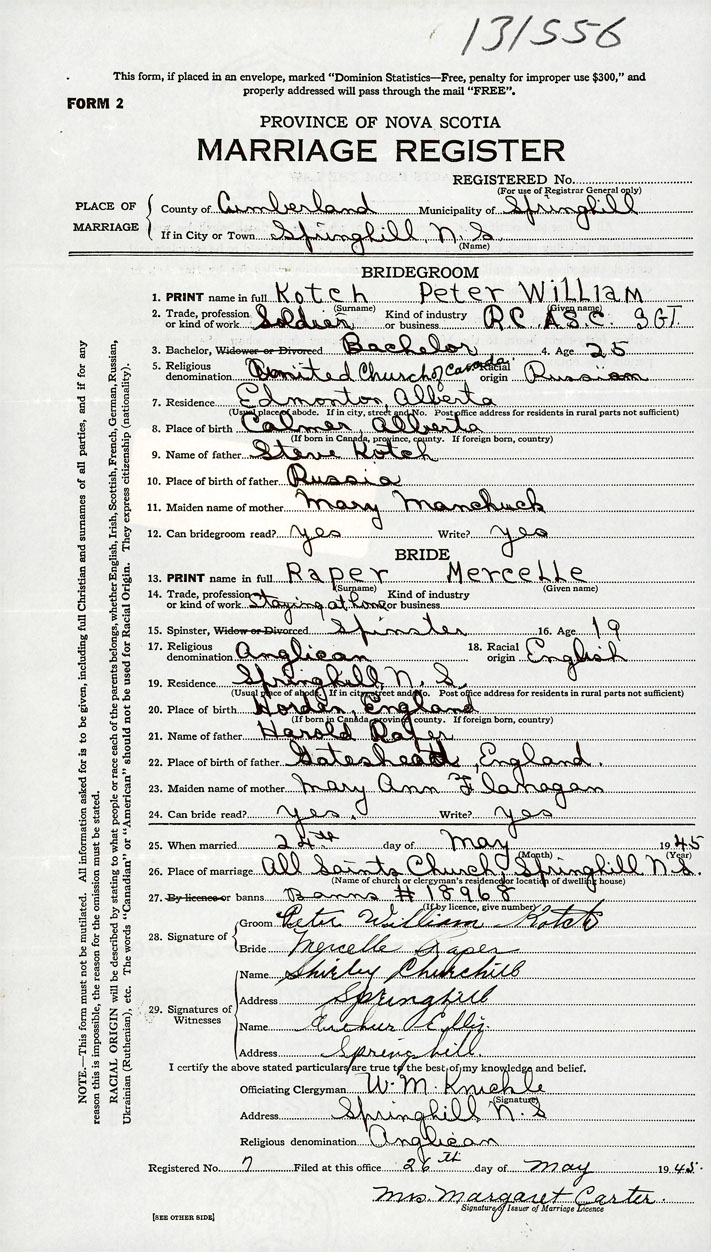 131556
This form, if placed in an envelope, marked "Dominion Statistics—Free, penalty for improper use $300," and
properly addressed will pass through the mail "FREE".
FORM 2
PROVINCE OF NOVA SCOTIA
MARRIAGE REGISTER
REGISTERED No.
(For use of Registrar General only)
PLACE OF MARRIAGE
County of Cumberland Municipality of Springhill
If in City or Town Springhill, N.S.
(Name)
BRIDEGROOM
1. PRINT name in full Kotch Peter William
(Surname) (Given name)
2. Trade, profession or kind of work Soldier Kind of industry or business R.C.A.S.C. SGT.
3. Bachelor, Widower or Divorced Bachelor 4. Age 25
5. Religious denomination United Church of Canada Racial origin Russian
7. Residence Edmonton, Alberta
(Usual place of abode. If in city, street and No. Post office address for residents in rural parts not sufficient)
8. Place of birth Calmer, Alberta
(If born in Canada, province, county. If foreign born, country)
9. Name of father Steve Kotch
10. Place of birth of father Russia
11. Maiden name of mother Mary Manchuck
12. Can bridegroom read? yes Write? yes
BRIDE
13. PRINT name in full Raper Mercelle
(Surname) (Given name)
14. Trade, profession or kind of work Staying at home Kind of industry or business
15. Spinster, Widow or Divorced Spinster 16. Age 19
17. Religious denomination Anglican 18. Racial origin English
19. Residence Springhill, N.S.
(Usual place of abode. If in city, street and No. Post office address for residents in rural parts not sufficient)
20. Place of birth Horden, England
(If born in Canada, province, county. If foreign born, country)
21. Name of father Harold Raper
22. Place of birth of father Gateshead, England.
23. Maiden name of mother Mary Ann Flanagan
24. Can bride read? yes. Write? yes
25. When married 24th day of May 1945
(Month) (Year)
26. Place of marriage All Saints Church, Springhill N.S.
(Name of church or clergyman's residence or location of dwelling house)
27. By licence or banns Banns # 18968
(If by licence, give number)
28. Signature of
Groom Peter William Kotch
Bride Mercelle Raper
29. Signatures of Witnesses
Name Shirley Churchill
Address Springhill
Name Arthur Ellis.
Address Springhill.
I certify the above stated particulars are true to the best of my knowledge and belief.
Officiating Clergyman W. M. Knickle
(Signature)
Address Springhill N.S
Religious denomination Anglican
Registered No. 7 Filed at this office 26th day of May 1945.
Mrs. Margaret Carter.
Signature of Issuer of Marriage Licence
[SEE OTHER SIDE]
NOTE.—This form must not be mutilated. All information asked for is to be given, including full Christian and surnames of all parties, and if for any
reason this is impossible, the reason for the omission must be stated.
RACIAL ORIGIN will be described by stating to what people or race each of the parents belongs, whether English, Irish, Scottish, French, German, Russian,
Ukrainian (Ruthenian), etc. The words "Canadian" or "American" should not be used for Racial Origin. They express citizenship (nationality).